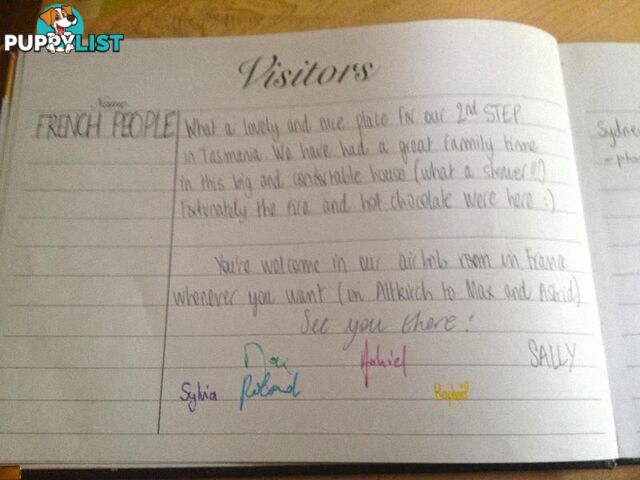 PUPPYLIST
Visitors
Name
FRENCH PEOPLE
What a lovely and nice place for our 2nd STEP
in Tasmania. We have had a great family time
in this big and confortable house (what a shower!!)
Fortunately the fire and hot chocolate were here :)
You're welcome in our airbnb room in France
whenever you want (in Altkirch to Max and Astrid)
See you there!
SALLY
Sylvia Roland Raphaël
Sydne
- pho